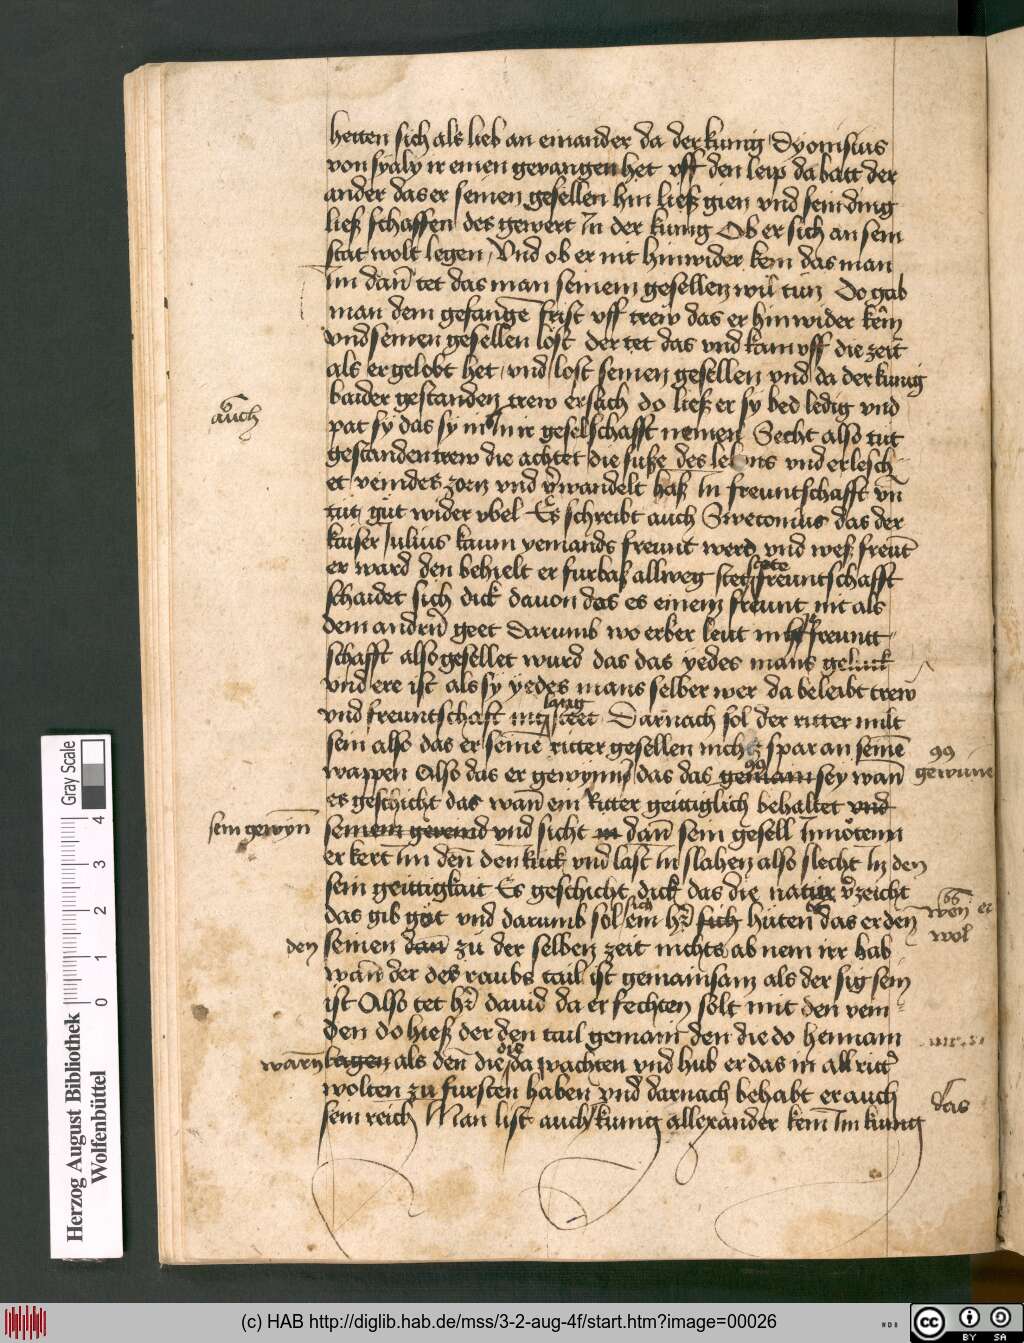 hetten sich als lieb an einander da der kunig Dyonisius
von syaly ir einen gevangen het vff den leip da batt der
ander das er seinen gesellen hin ließ gien vnd sein ding
ließ schaffen des gewert in der kunig Ob er sich an sein
stat wolt legen / Vnd ob er nit hinwider kem das man
Im dan̄ tet das man seinem gesellen wil tün Do gab
man dem gefangē frist vff trew das er hinwider kem
vnd seinen gesellen löst der tet das vnd kam vff die zeit
als er gelobt het / vnd lost seinen gesellen vnd da der kunig
baider gestanden trew ersach do ließ er sy bed ledig vnd
auch
pat sy das sy in ir geselschafft nemen Secht also tut
gestanden trew die achtet die suße des lebens vnd erlesch
et veindes zorn vnd v̄wandelt haß In freuntschafft vn̄
tüt güt wider vbel Es schreibt auch Swetonius das der
kaiser Julius kaum yemands freunt werd vnd weß freūt
er ward den behielt er furbaß allweg stet freuntschafft
schaidet sich dick dauon das es einem freunt nit als
dem andrn̄ geet Darumb wo erber leut in freunt
schafft also gesellet wurd das das yedes mans geluck
vnd ere ist als sy yedes mans selber wer da beleibt trew
lang
vnd freuntschaft Darnach sol der ritter milt
sein also das er seinē ritter gesellen nichtz spar an seinē
wappen Also das er gewynn das das gemain sey wan̄
gewinne
es geschicht das wan̄ ein Ritter geittiglich behaltet vnd
sein gewyn̄
seinen vnd sicht dan̄ sein gesell In nöten
er kert im den̄ den ruck vnd last in slahen also slecht In den
sein geittigkait Es geschicht dick das die natur v̄zeicht
das gib got vnd darumb sol sich ein hr̄ sich hüten das er den̄
wen er
wol
den
seinen dan̄ zu der selben zeit nichts ab nem irr hab
wan̄ der des raubs tail ist gemainsam als der sig sein
ist Also tet hr̄ dauid da er fechten solt mit den vein
den do hieß der den tail gemain den die do hennam
warn̄
lagen als den̄ die da wachten vnd hub er das in all ritt
wolten zu fursten haben vnd darnach behabt er auch
das
sein reich Man list auch kunig allexander kem̄ Im kunig
Gray Scale
0 1 2 3 4
Herzog August Bibliothek
Wolfenbüttel
(c) HAB http://diglib.hab.de/mss/3-2-aug-4f/start.htm?image=00026
WDB
CC
BY SA